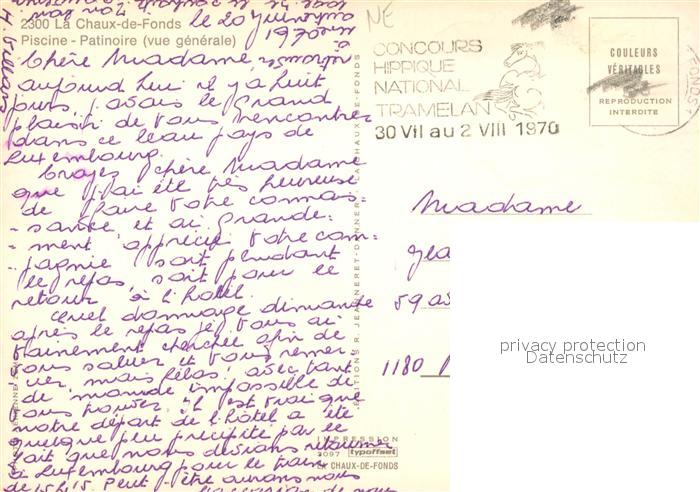 2300 La Chaux-de-Fonds
Piscine - Patinoire (vue générale)
le 20 juin
1970
Chère Madame,
aujourd'hui il y a huit
jours, j'avais le grand
plaisir de vous rencontrer
dans ce beau pays de
Luxembourg.
Croyez chère Madame
que j'ai été très heureuse
de faire votre connais-
sance et ai grande-
ment apprécié votre com-
pagnie soit pendant
le repas, soit pour le
retour à l'hôtel.
Quel dommage dimanche
après le repas je vous ai
vainement cherchée afin de
vous saluer et vous remer-
cier, mais hélas, avec tant
de monde impossible de
vous trouver. Il est vrai que
notre départ de l'hôtel a été
quelque peu précipité par le
fait que nous désirions retourner
à Luxembourg pour le train
de 15h15. Peut-être aurons-nous
l'occasion de nous
EDITIONS R. JEANNERET-DANNER, LA CHAUX-DE-FONDS
IMPRESSION
3097 typoffset
LA CHAUX-DE-FONDS
NE
CONCOURS
HIPPIQUE
NATIONAL
TRAMELAN
30 VII au 2 VIII 1970
COULEURS
VÉRITABLES
REPRODUCTION
INTERDITE
Madame
59
1180
privacy protection
Datenschutz